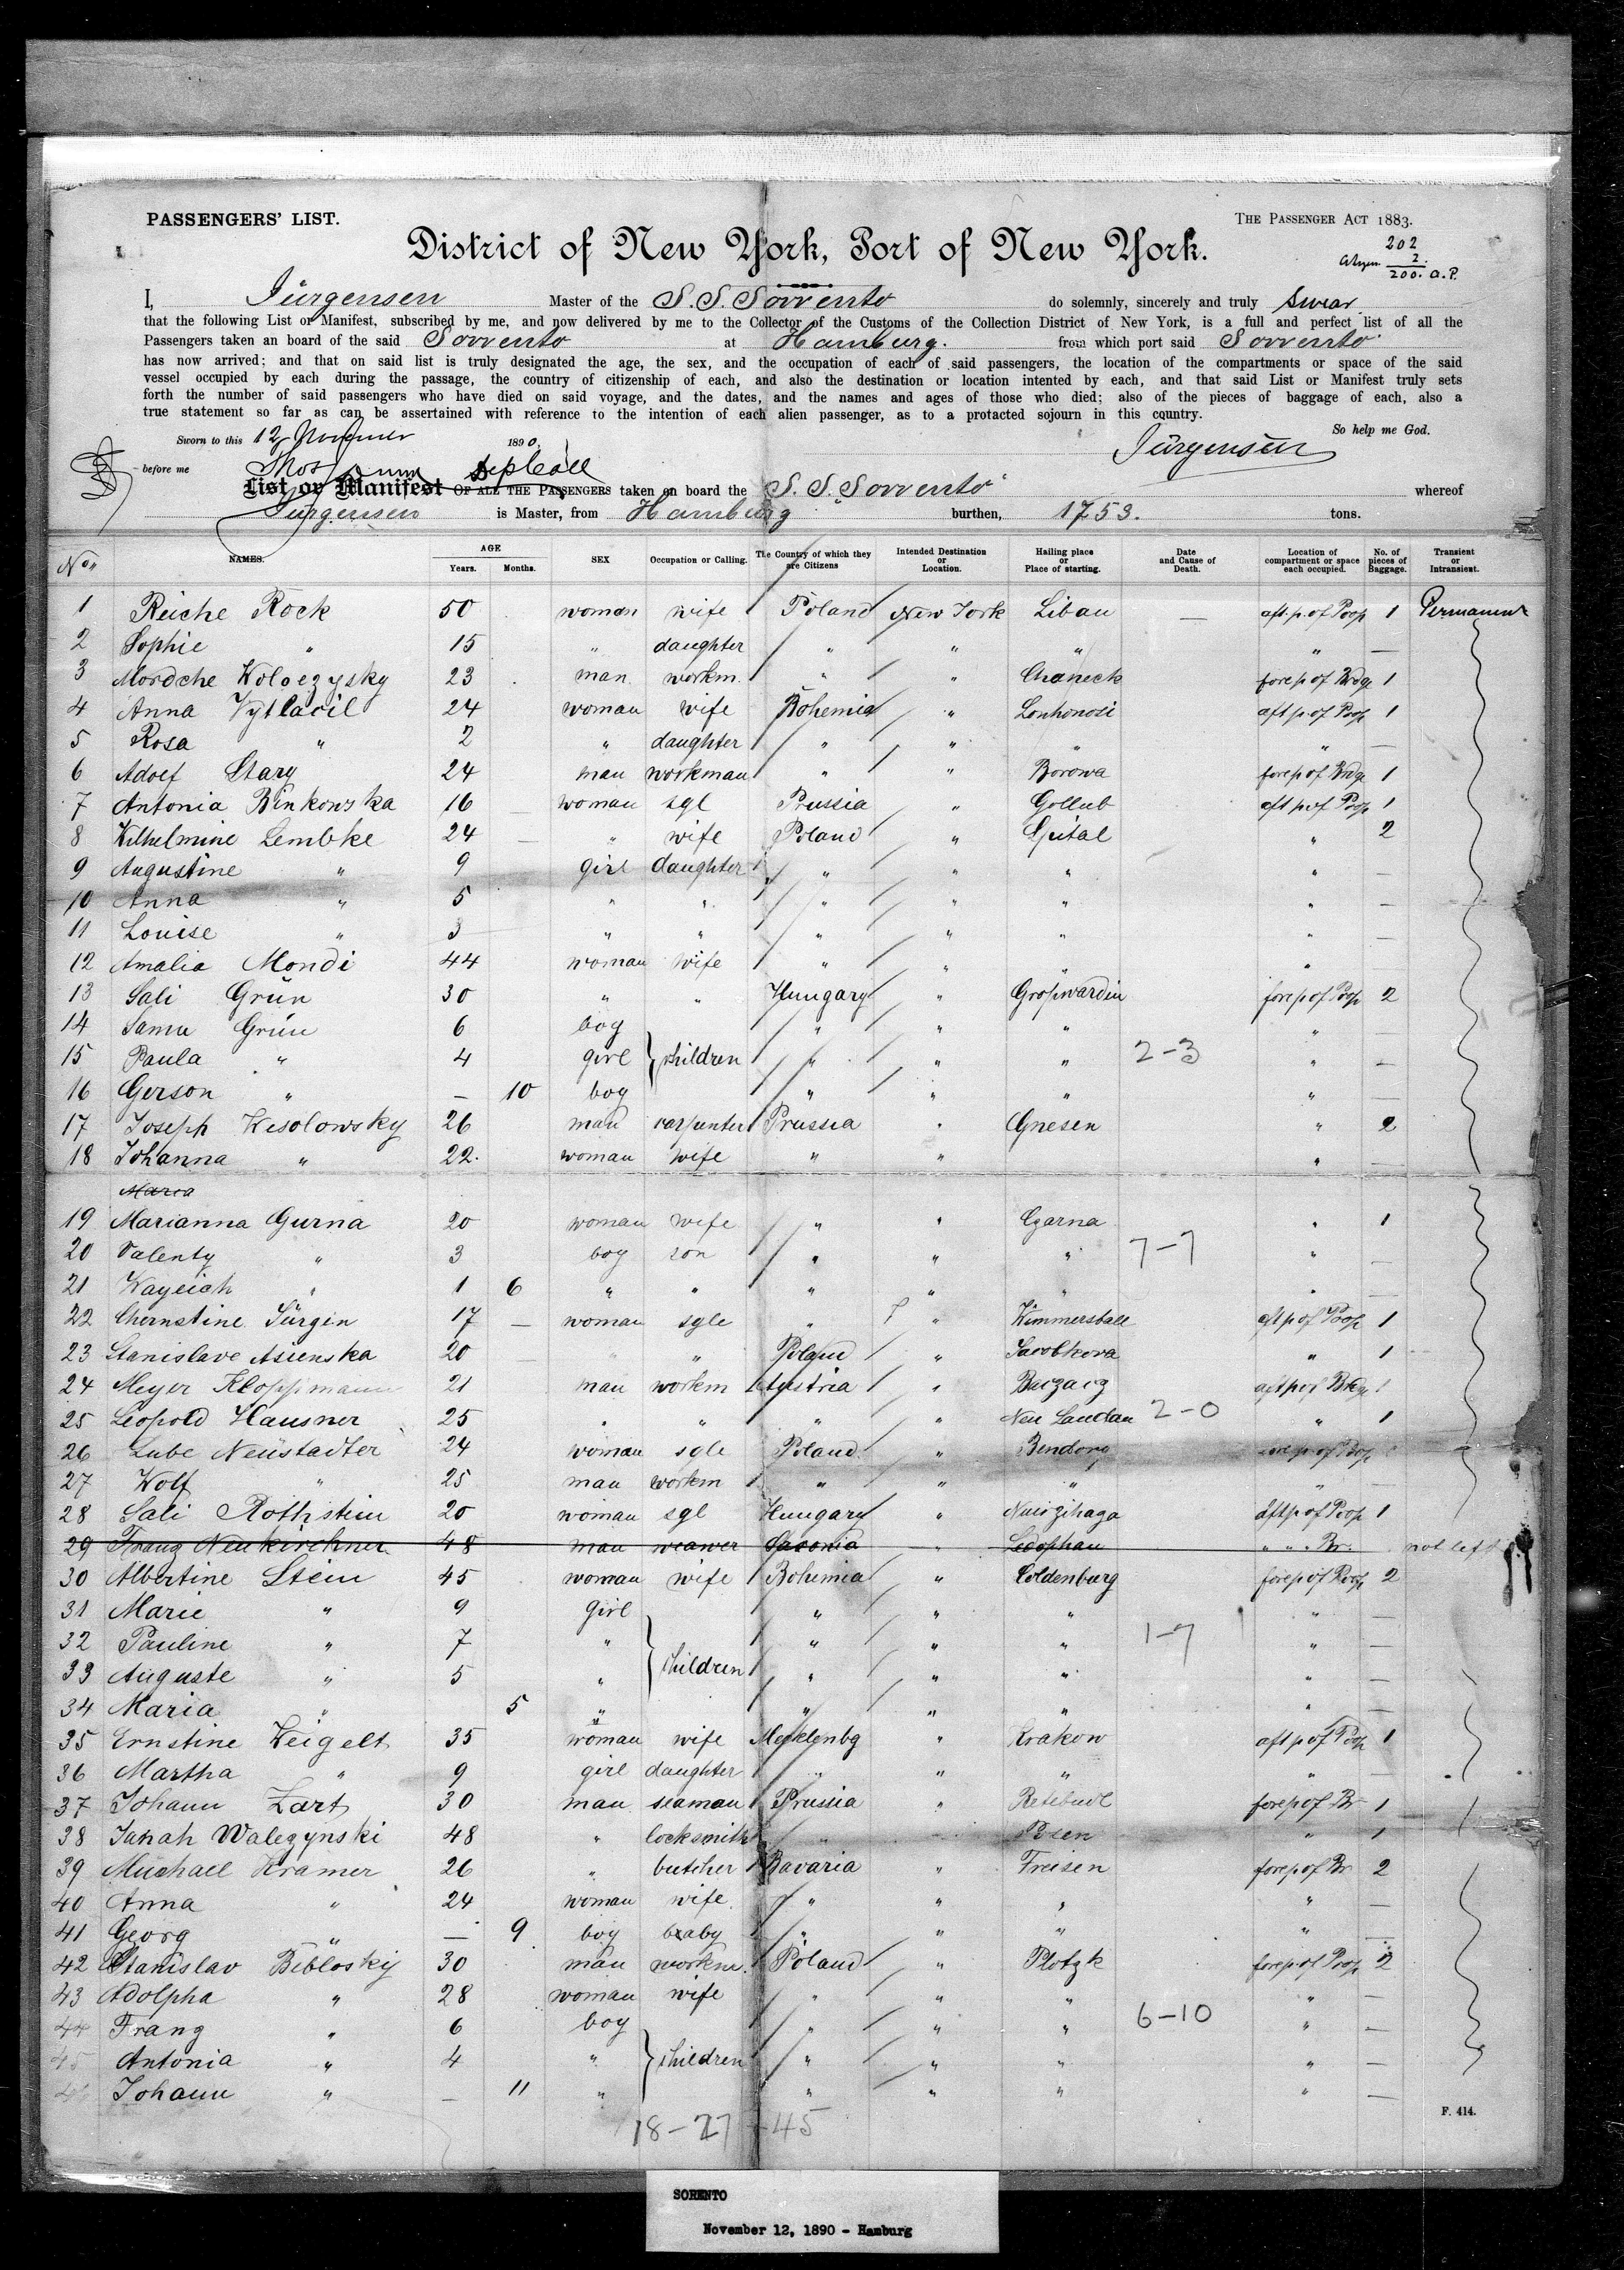 PASSENGERS' LIST.
THE PASSENGER ACT 1883.
1.
District of New York, Port of New York.
202
2.
200. a.P.
I, Jürgensen Master of the S.S. Sorrento do solemnly, sincerely and truly swear
that the following List or Manifest, subscribed by me, and now delivered by me to the Collector of the Customs of the Collection District of New York, is a full and perfect list of all the
Passengers taken an board of the said Sorrento at Hamburg. from which port said Sorrento
has now arrived; and that on said list is truly designated the age, the sex, and the occupation of each of said passengers, the location of the compartments or space of the said
vessel occupied by each during the passage, the country of citizenship of each, and also the destination or location intented by each, and that said List or Manifest truly sets
forth the number of said passengers who have died on said voyage, and the dates, and the names and ages of those who died; also of the pieces of baggage of each, also a
true statement so far as can be assertained with reference to the intention of each alien passenger, as to a protacted sojourn in this country.
Sworn to this 12 November 1890. So help me God.
Jürgensen
before me Thos Dep Coll
List or Manifest OF ALL THE PASSENGERS taken on board the S.S. "Sorrento" whereof
Jürgensen is Master, from Hamburg burthen, 1753. tons.
No. NAMES. AGE Years. Months. SEX Occupation or Calling. The Country of which they are Citizens Intended Destination or Location. Hailing place or Place of starting. Date and Cause of Death. Location of compartment or space each occupied. No. of pieces of Baggage. Transient or Intransient.
1 Reiche Rock 50 woman wife Poland New York Libau — aft p. of Poop 1 Permanent
2 Sophie " 15 " daughter " " " " —
3 Mordche Woloczysky 23 man workm. " " Chaneck forep of Brdg 1
4 Anna Vytlacil 24 woman wife Bohemia " Lonhonosi aft p of Poop 1
5 Rosa " 2 " daughter " " " " —
6 Adolf Stary 24 man workman " " Borowa forep of Brdg 1
7 Antonia Binkowska 16 — woman sgl Prussia " Gollub aft p of Poop 1
8 Wilhelmine Lembke 24 — " wife Poland " Spital " 2
9 Augustine " 9 girl daughter " " " " —
10 Anna " 5 " " " " " " —
11 Louise " 3 " " " " " " —
12 Amalia Mondi 44 woman wife " " " " —
13 Sali Grün 30 " " Hungary " Großwardin forep of Poop 2
14 Samu Grün 6 boy " " " " —
15 Paula " 4 girl children " " " 2-3 " —
16 Gerson " — 10 boy " " " " —
17 Joseph Wesolowsky 26 man carpenter Prussia " Gnesen " 2
18 Johanna " 22. woman wife " " " —
Maria
19 Marianna Gurna 20 woman wife " " Czarna " 1
20 Valenty " 3 boy son " " " 7-7 " —
21 Wayeiah " 1 6 " " " " " " —
22 Chernstine Jürgin 17 — woman sgle " " Wimmersball aft p of Poop 1
23 Stanislave Asienska 20 — " " Poland " Jacobkova " 1
24 Meyer Kloppmann 21 man workm Austria " aft p of Brdg 1
25 Leopold Hausner 25 " " " " Neu Sandau 2-0 " 1
26 Lube Neustadter 24 woman sgle Poland " Bendorg forep of Poop
27 Wolf " 25 man workm " " " " —
28 Sali Rothstein 20 woman sgl Hungary " aft p of Poop 1
29 Franz Neukirchner 48 man weawer Saxonia " Ledophau " " Br. not left
30 Albertine Stein 45 woman wife Bohemia " Coldenburg forep of Poop 2
31 Marie " 9 girl " " " " —
32 Pauline " 7 " children " " " 1-7 " —
33 Auguste " 5 " " " " " —
34 Maria " 5 " " " " " —
35 Ernstine Weigelt 35 woman wife Mecklenbg " Krakow aft p of Poop 1
36 Martha " 9 girl daughter " " " " —
37 Johann Zart 30 man seaman Prussia " forep of Br 1
38 Janah Walezynski 48 " locksmith " " Posen " 1
39 Michael Kramer 26 " butcher Bavaria " Freisen forep of Br 2
40 Anna " 24 woman wife " " " " —
41 Georg " — 9 boy baby " " " " —
42 Stanislav Beblosky 30 man workm. Poland " Plotzk forep of Poop 2
43 Adolpha " 28 woman wife " " " " —
44 Franz " 6 boy " " " 6-10 " —
45 Antonia " 4 " children " " " " —
46 Johann " — 11 " " " " " —
18-27-45
F. 414.
SORENTO
November 12, 1890 - Hamburg